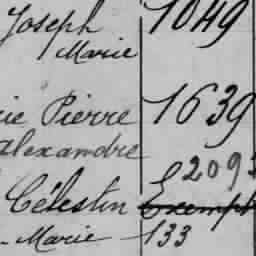 Joseph 1049
Marie
Pierre 1639
Alexandre
2093
Célestin Exempt
Marie 133